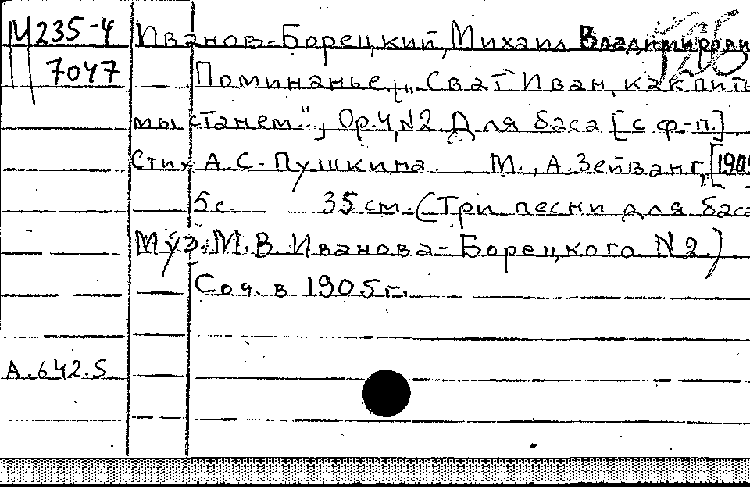 М235-4
7047
Иванов-Борецкий, Михаил Владимирови
Поминанье „Сват Иван, как пить
мы станем", Op.4, N2 Для баса [с ф-п.]
Стих А.С. Пушкина М., А. Зейванг, [190
5с. 35см. (Три песни для бас
Муз. М.В. Иванова-Борецкого N2.)
Соч. в 1905г.
А.642.5